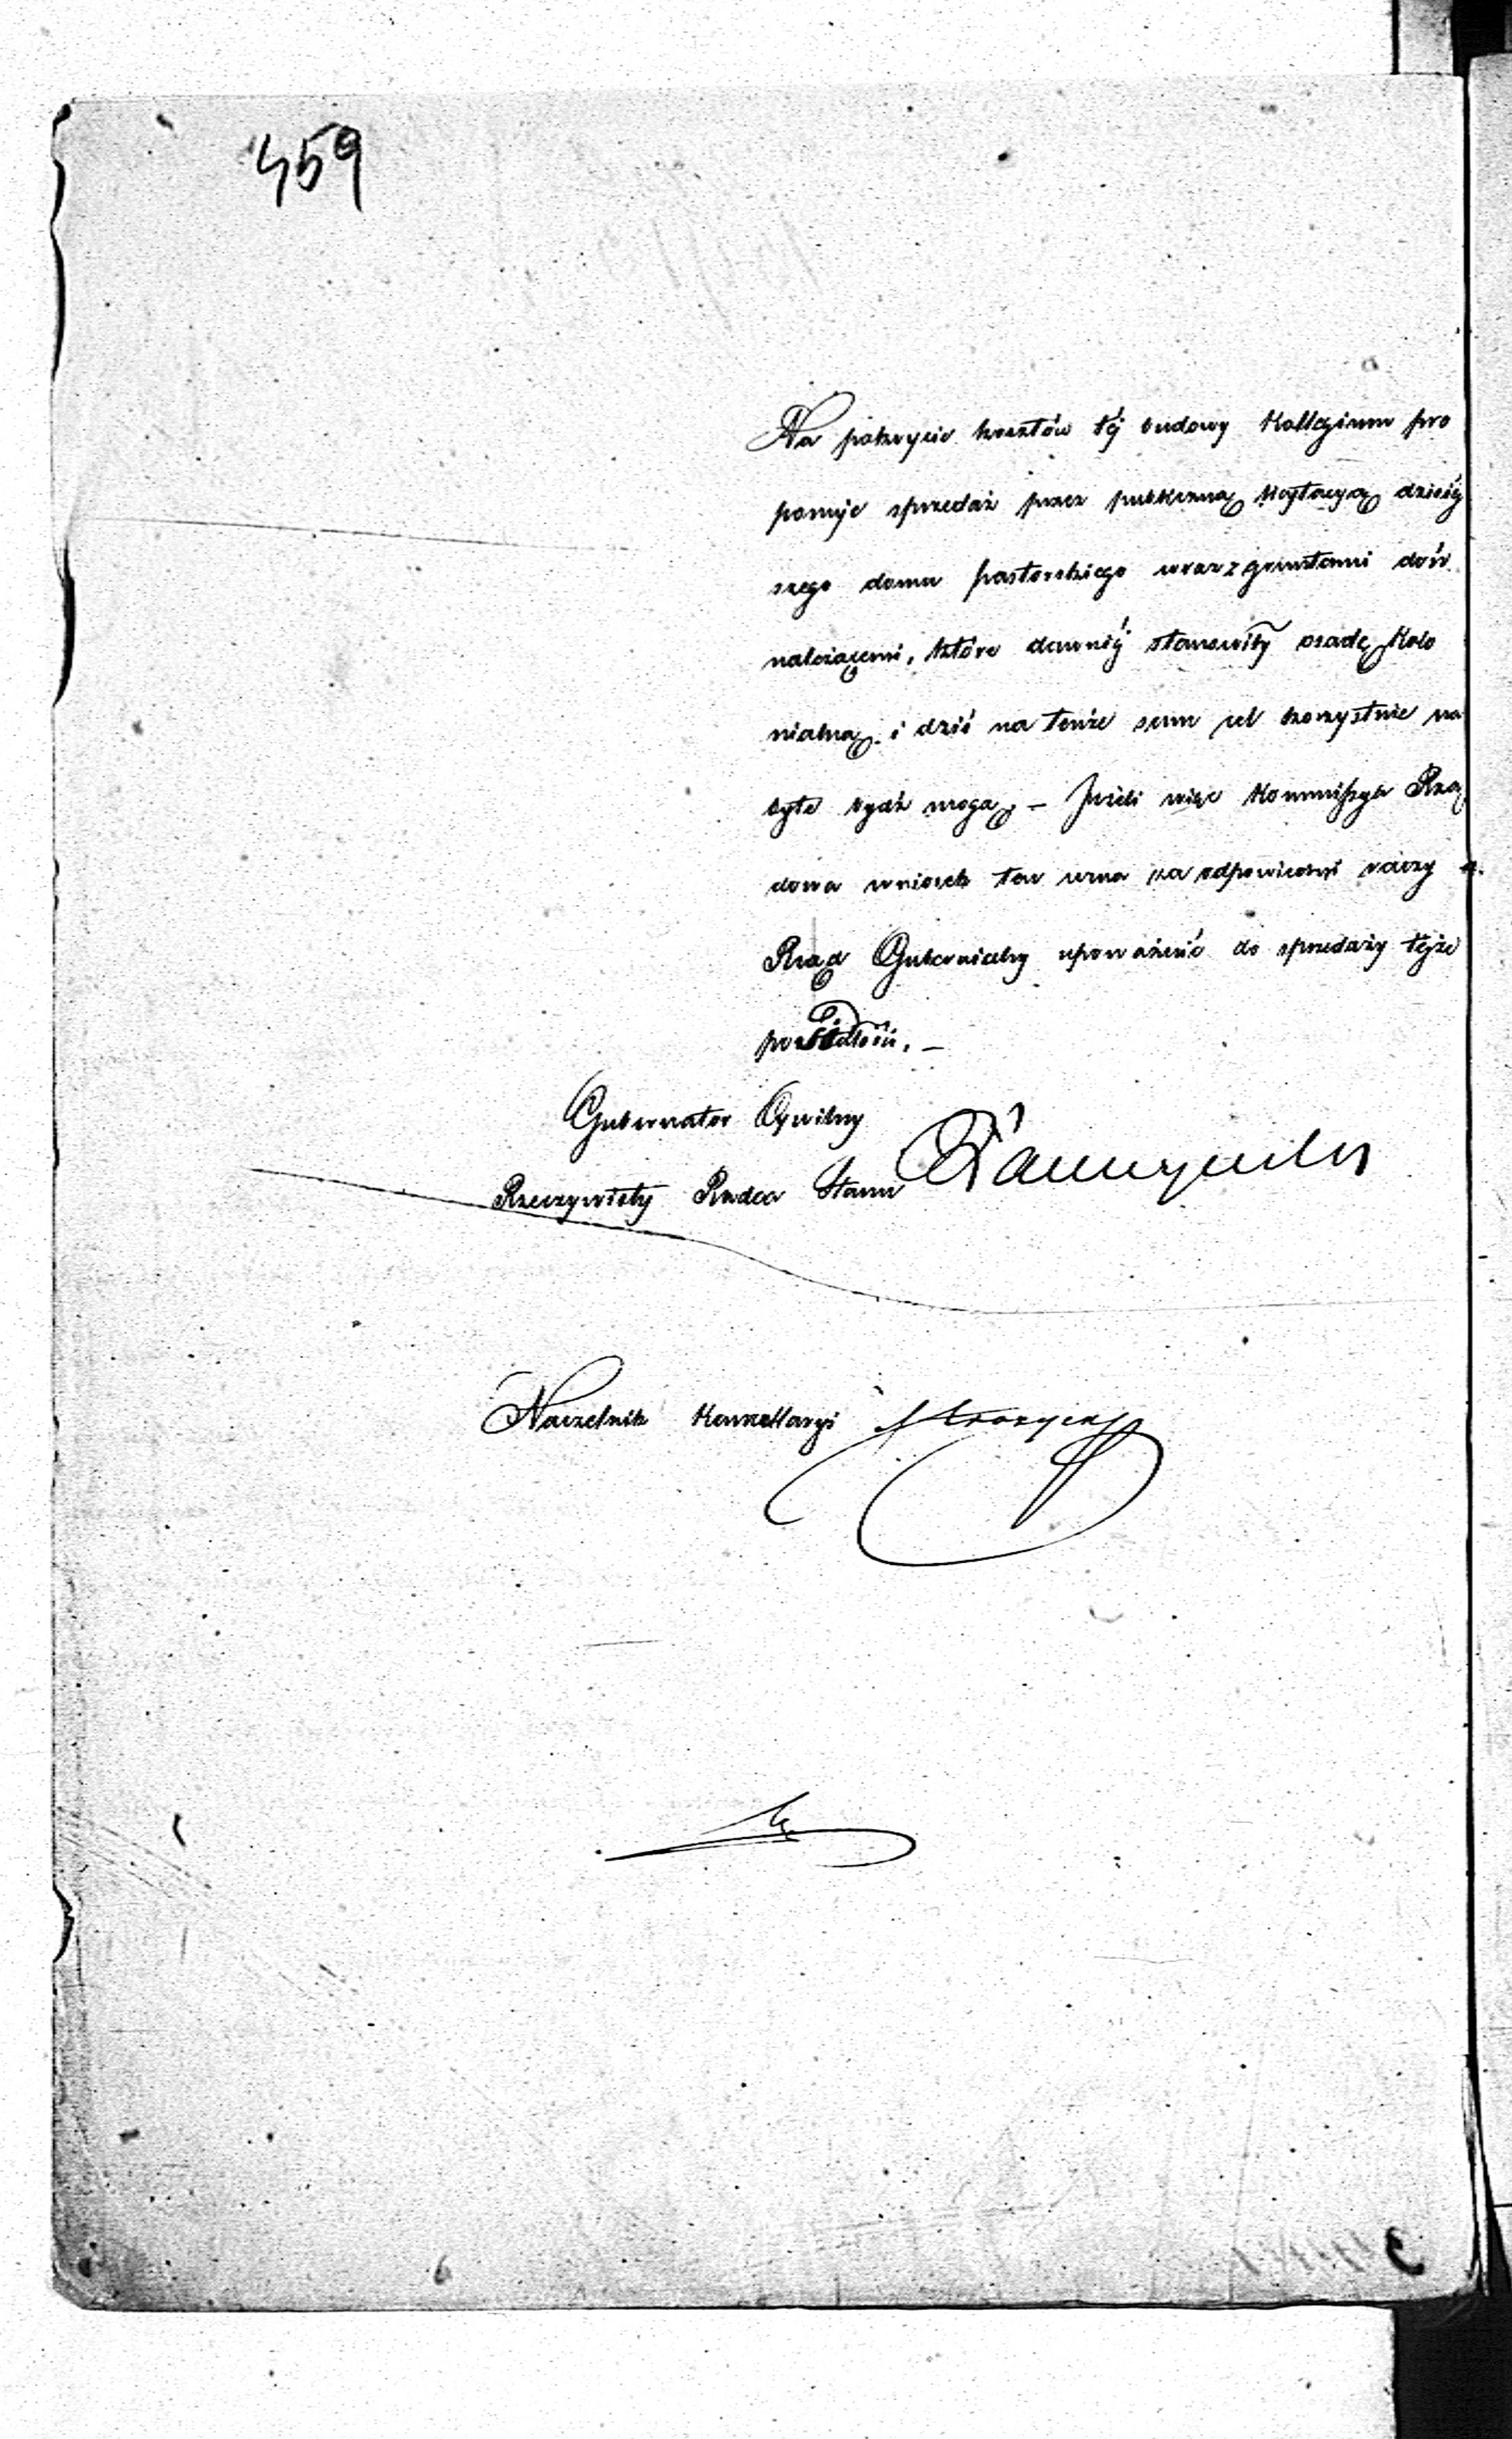 459
Na pokrycie kosztów téj budowy Kollegium pro
ponuje sprzedaż przez publiczną licytacyą dzisiéj
szego domu pastorskiego wraz z gruntami doń
należącemi, które dawniéj stanowiły osadę kolo
nialną i dziś na tenże sam cel korzystnie na
byte bydź mogą. — Jeżeli więc Kommissya Rzą
dowa wniosek ten uzna za odpowiedni raczy
Rząd Gubernialny upoważnić do sprzedaży tejże
posiadłości. —
Gubernator Cywilny
Rzeczywisty Radca Stanu
Naczelnik Kancellaryi